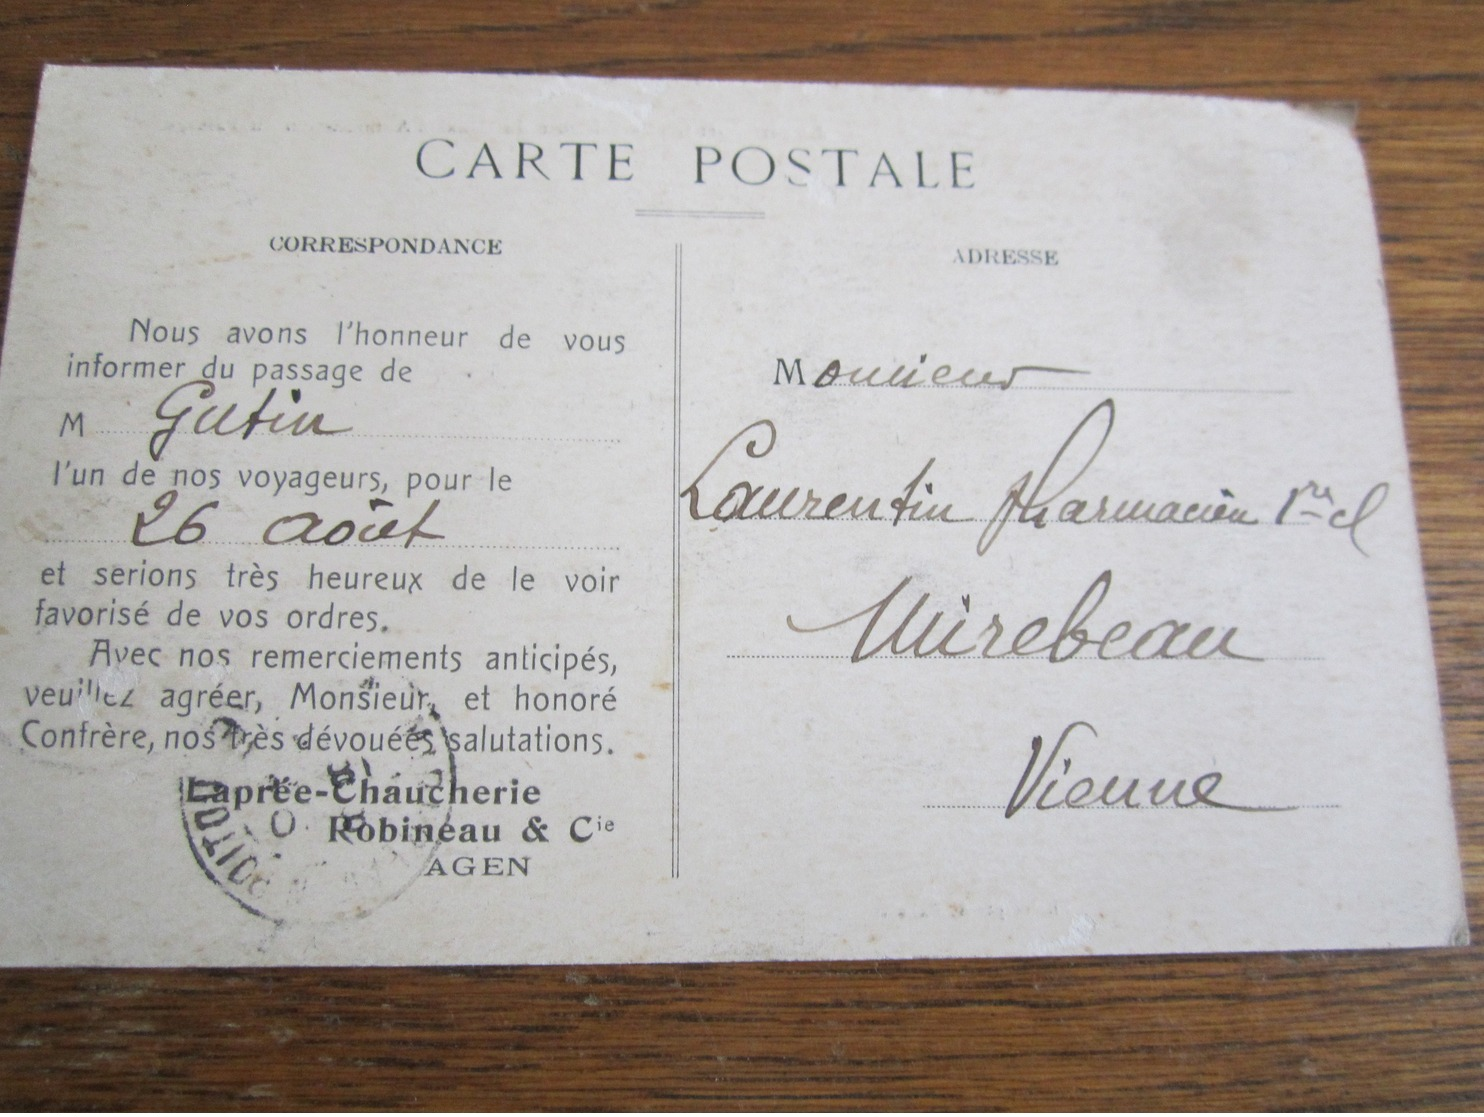 CARTE POSTALE
CORRESPONDANCE
Nous avons l'honneur de vous
informer du passage de
M Gutin
l'un de nos voyageurs, pour le
26 août
et serions très heureux de le voir
favorisé de vos ordres.
Avec nos remerciements anticipés,
veuillez agréer, Monsieur, et honoré
Confrère, nos très dévouées salutations.
Laprée-Chaucherie
Robineau & Cie
AGEN
ADRESSE
Monsieur
Laurentin pharmacien 1re cl
Mirebeau
Vienne